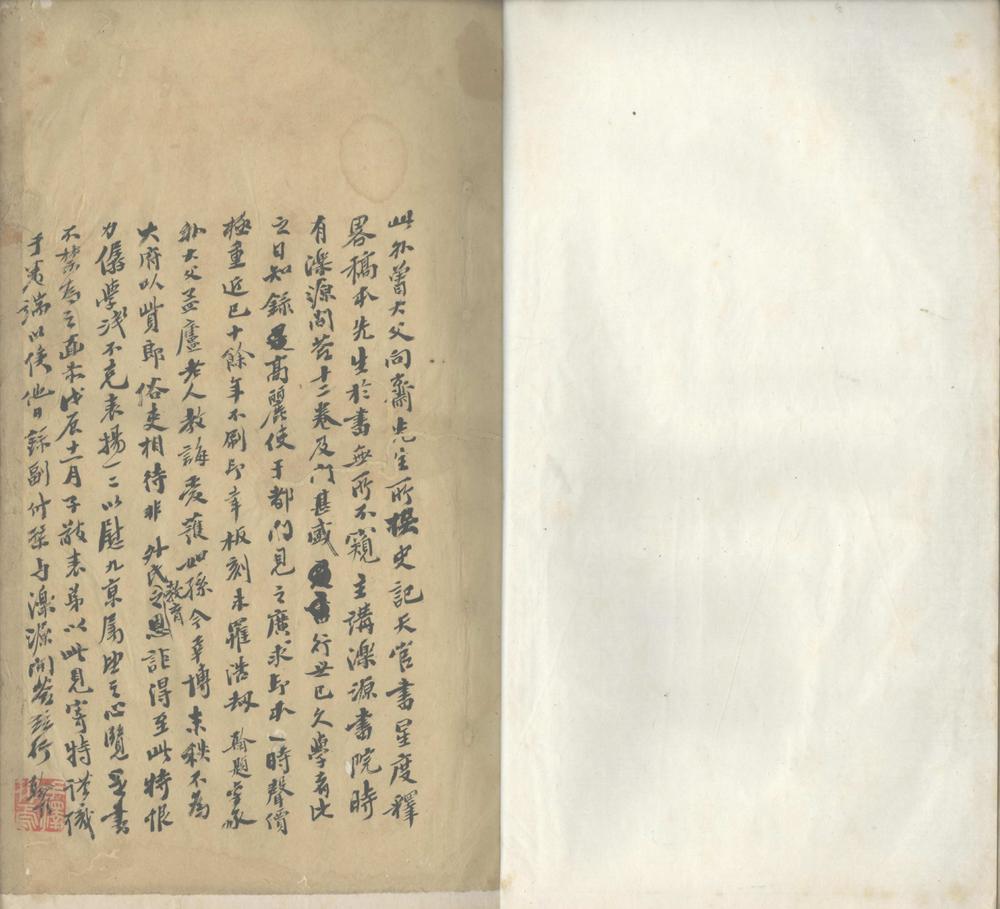 此外曾大父向齋先生所撰史記天官書星度釋
畧稿本先生於書無所不窺主講濼源書院時
有濼源問荅十二卷及門甚盛行世已久學者比
之日知錄高麗使于都門見之廣求印本一時聲價
極重近已十餘年不刷印幸板刻未罹浩劫翰題尝承
外大父孟廬老人教誨愛護如孫今幸博末秩不為
大府以貲郎俗吏相待非外氏教育之恩詎得至此特恨
力孱學淺不克表揚一二以慰九京屬望之心覽是書
不禁為之直示戊辰十一月子敬表弟以此見寄特謹識
于卷端以俟他日錄副付梓与濼源問荅並行翰題